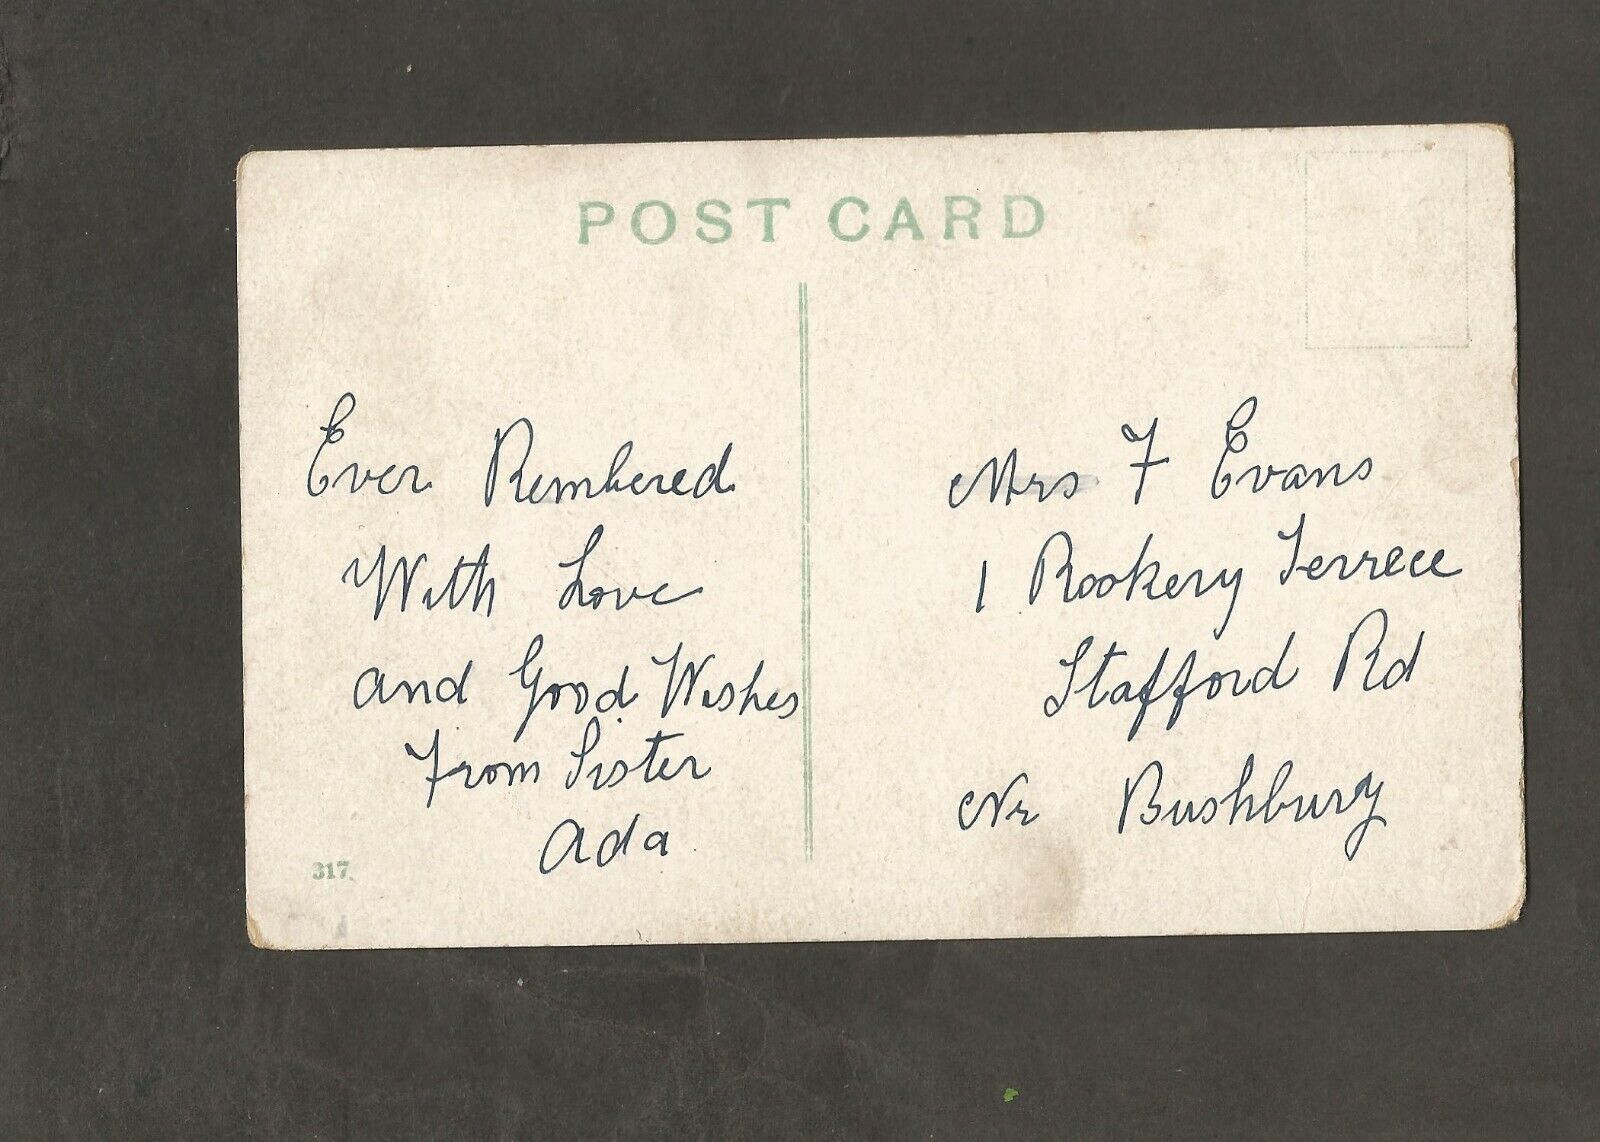 POST CARD
Ever Rembered
With Love
and Good Wishes
From Sister
Ada
317.
Mrs F Evans
1 Rookery Terrece
Stafford Rd
Nr Bushbury